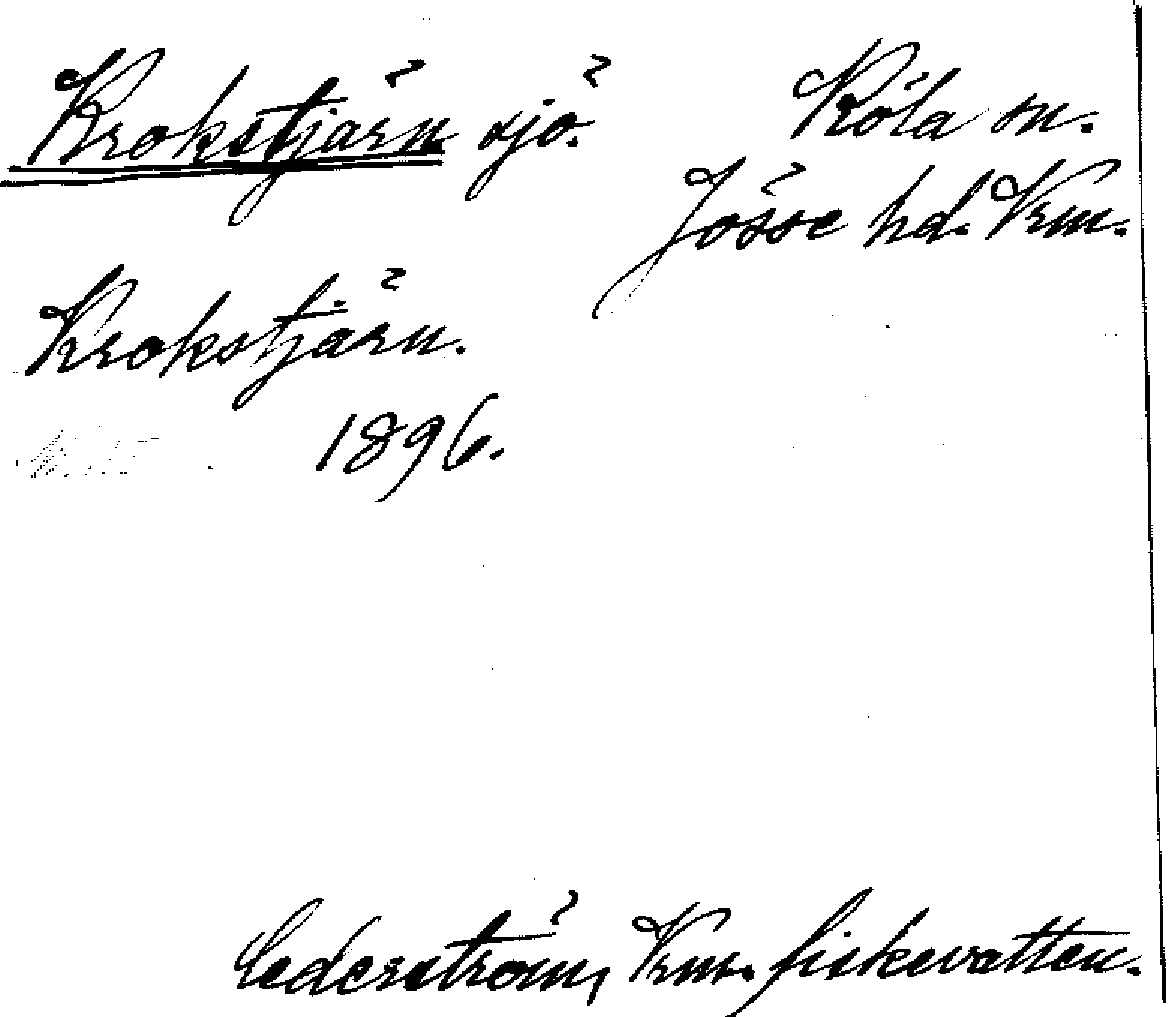 Krokstjärn sjö.
Köla sn.
Jösse hd. Vrm.
Krokstjärn.
1896.
Cederström, Vrm. fiskevatten.